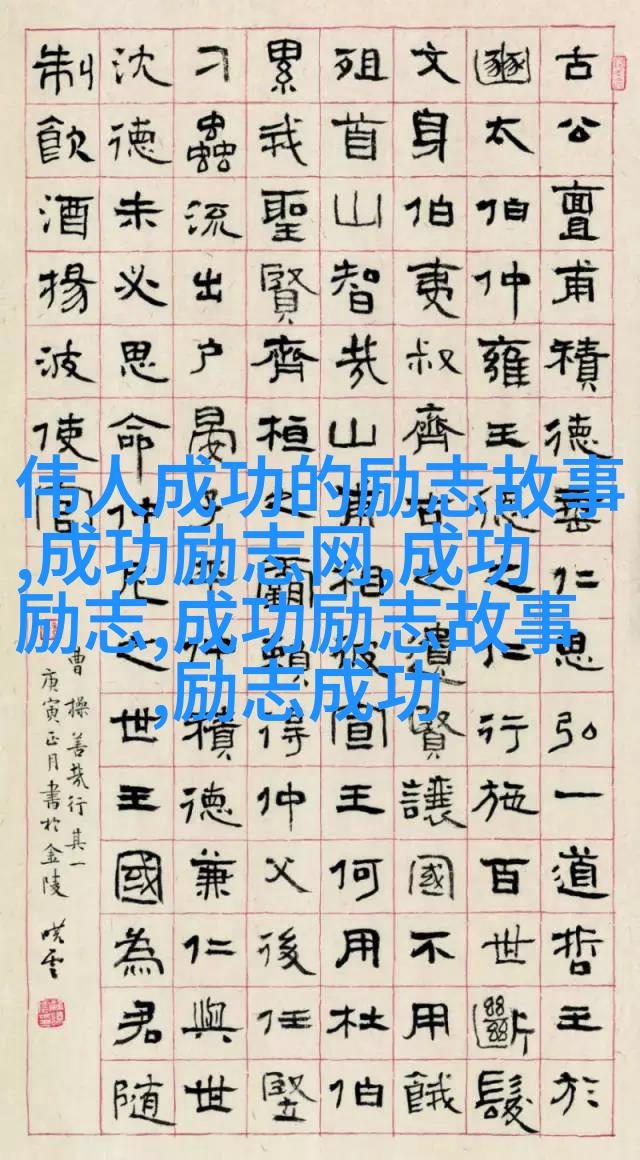 伟人成功的励志故事
,成功励志网,成功
励志,成功励志故事
,励志成功
古公亶甫積德垂仁思弘一道哲王於
豳太伯仲雍王德之仁行施百世斷髮
文身伯夷叔齊古之遺賢讓國不用餓
殂首山智哉山甫相彼宣王何用杜伯
累我聖賢齊桓之霸賴得仲父後任豎
刁蟲流出户晏子平仲積德兼仁與世
沈德未必思命仲尼之世王國為君随
制飲酒揚波使官
曹操善哉行其一
庚寅正月書於金陵